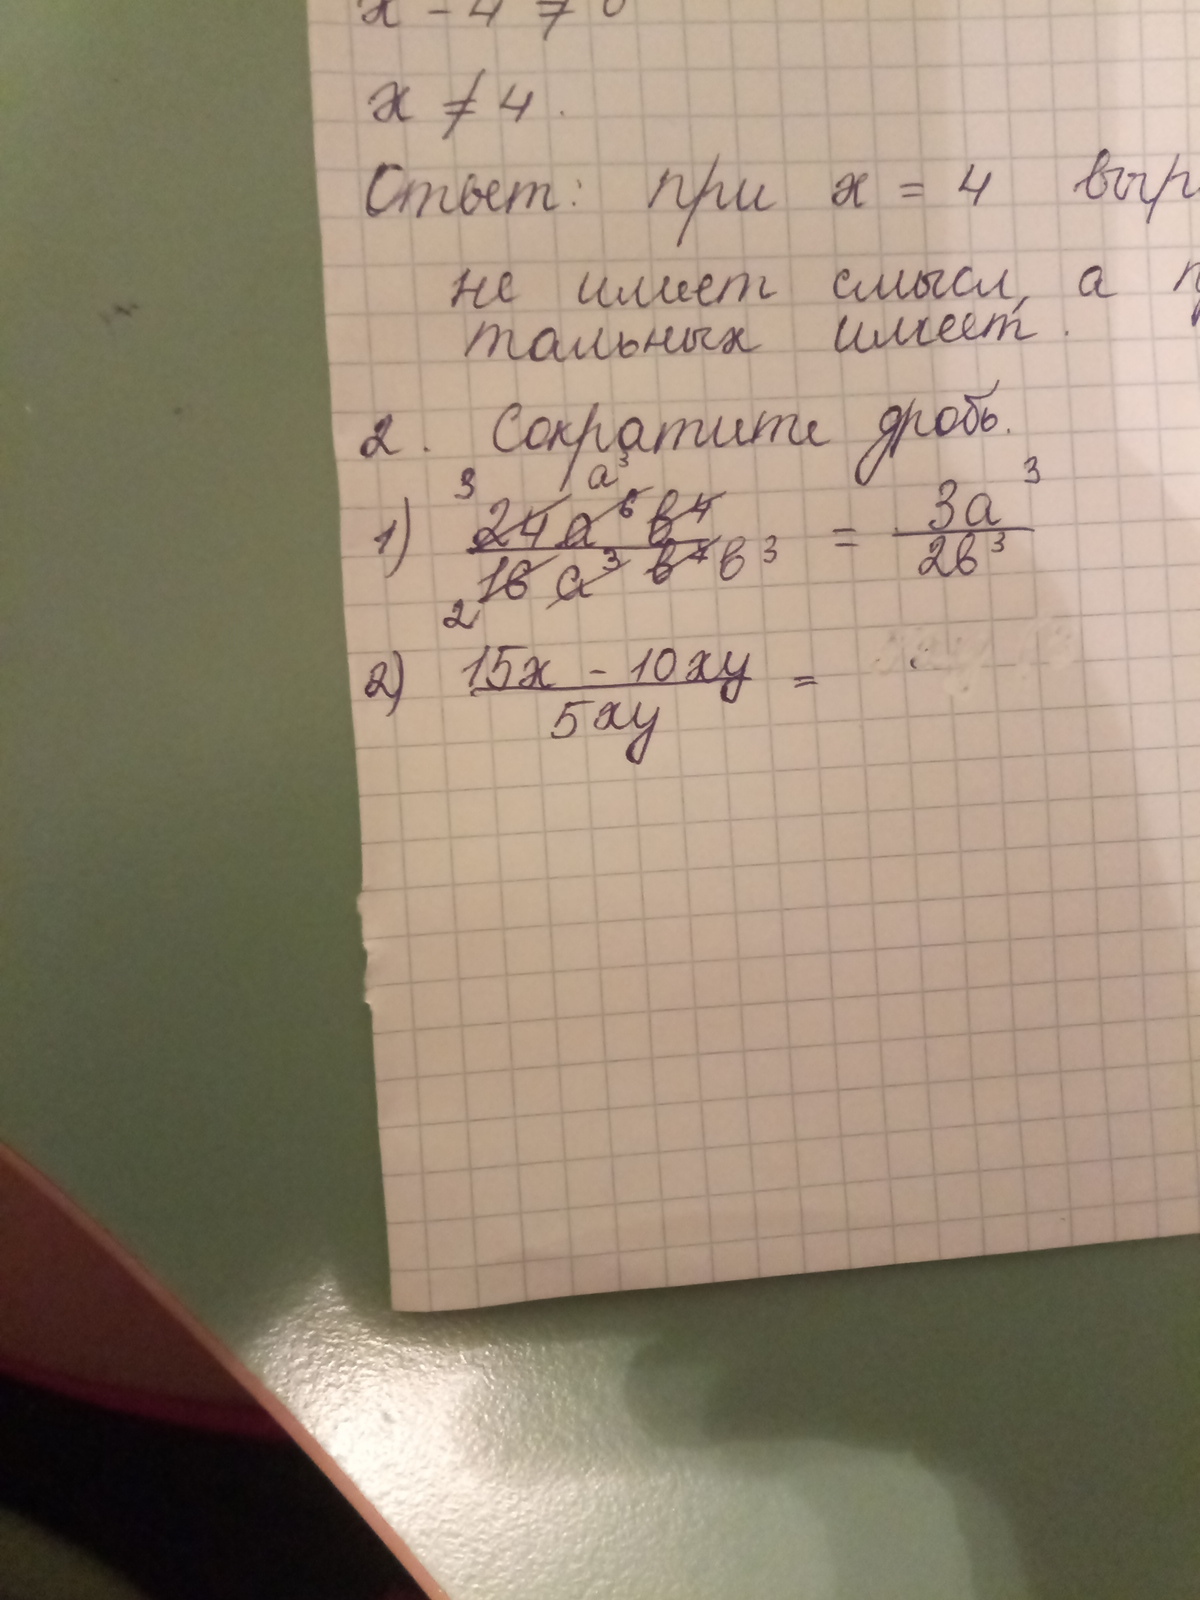 x - 4 ≠ 0
x ≠ 4.
Ответ: при x = 4
не имеет смысл, а
тальных имеет.
2. Сократите дробь.
3 a³
1) 24 a⁶ b⁴ / 16 a³ b⁷ b³ = 3a³ / 2b³
2
2) 15x - 10xy / 5xy =